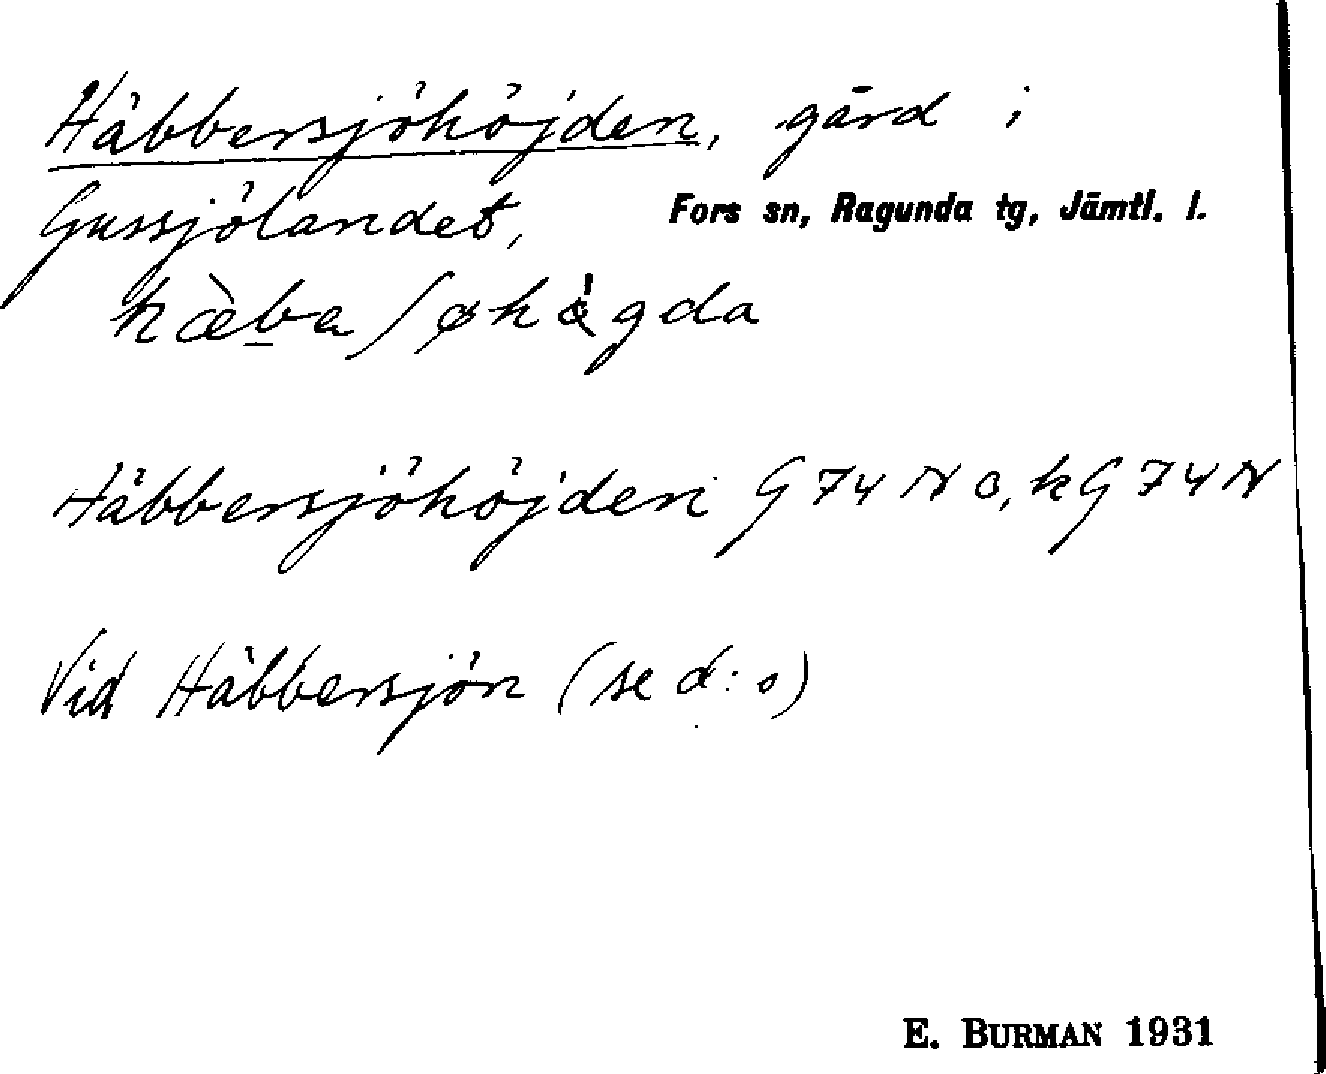 Häbbersjöhöjden, gård i
Gussjölandet, Fors sn, Ragunda tg, Jämtl. l.
hæ̀ba ʃøhø̍gda
Häbbersjöhöjden G 74 N o, k G 74 N
Vid Häbbersjön (se d:o)
E. BURMAN 1931